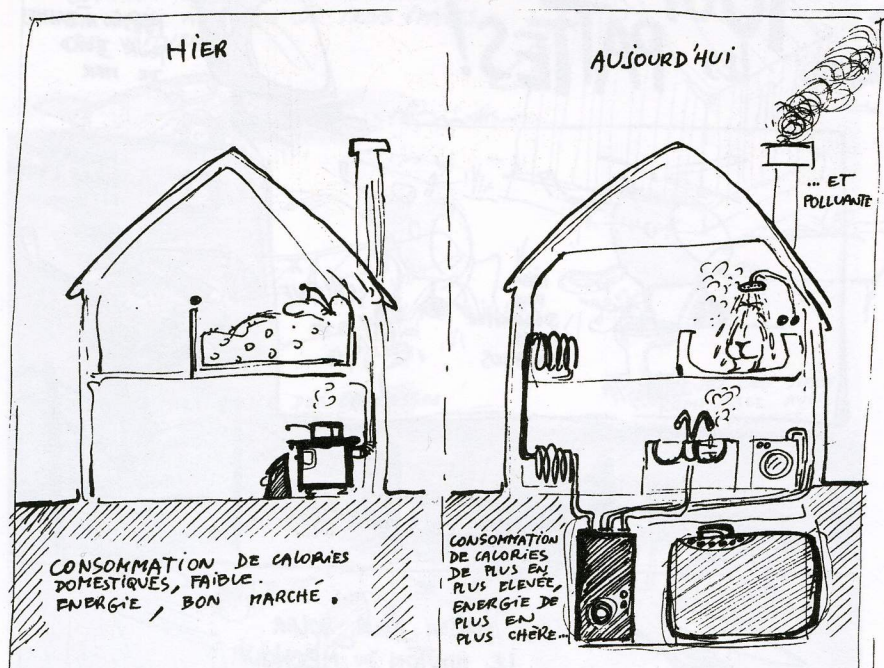 HIER
CONSOMMATION DE CALORIES
DOMESTIQUES, FAIBLE.
ENERGIE, BON MARCHÉ.
AUJOURD'HUI
... ET
POLLUANTE
CONSOMMATION
DE CALORIES
DE PLUS EN
PLUS ELEVÉE,
ENERGIE DE
PLUS EN
PLUS CHÈRE...